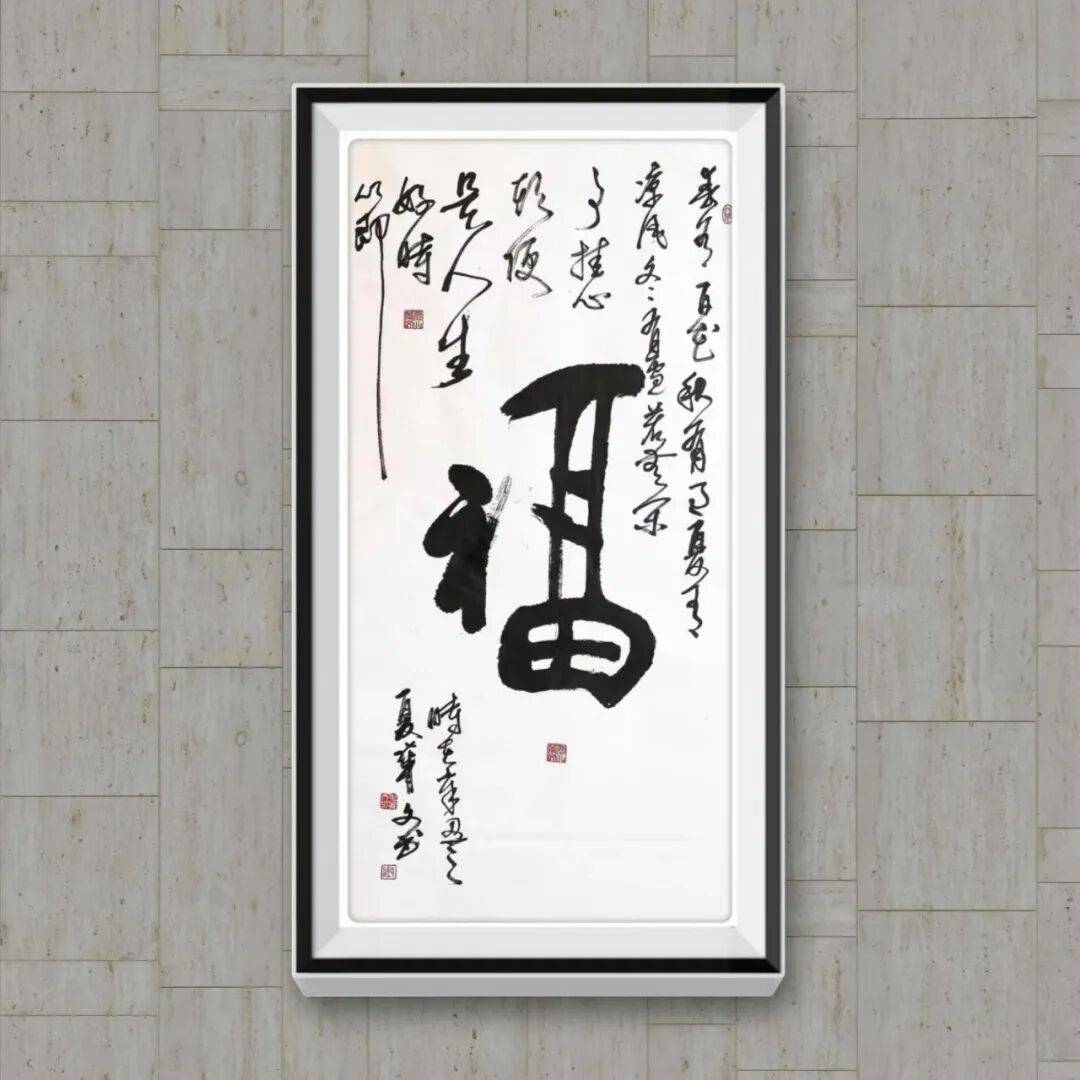 春有百花秋有月夏有
凉风冬有雪若无闲
事挂心
头便
是人生
好時
節
福
時在辛丑之
夏華文书